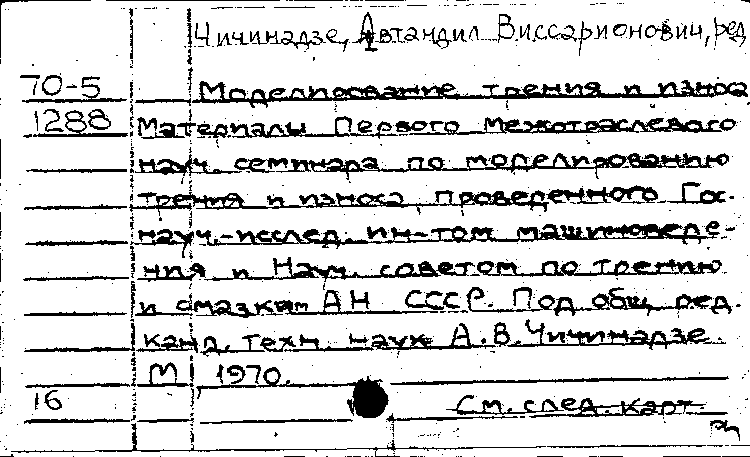 Чичинадзе, Автандил Виссарионович, ред
70-5 Моделирование трения и износа
1288 Материалы Первого Межотраслевого
науч. семинара по моделированию
трения и износа, проведенного Гос.
науч.-исслед. ин-том машиноведе-
ния и Науч. советом по трению
и смазкам АН СССР. Под общ. ред.
канд. техн. наук А.В. Чичинадзе.
М., 1970.
16 См. след. карт.